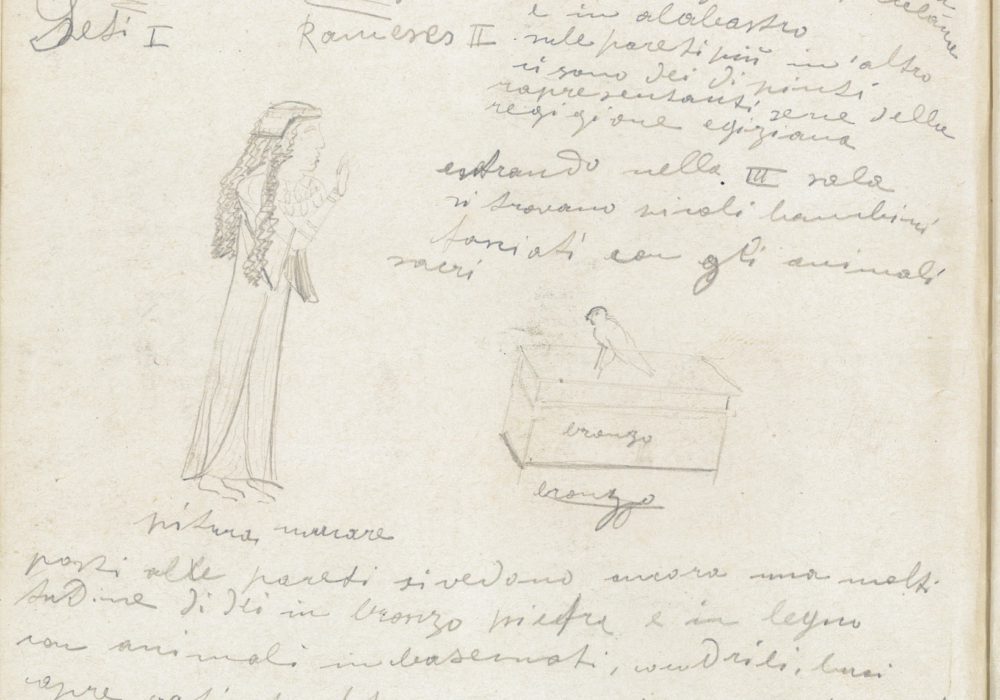 Seti I
Rameses II
e in alabastro
sulle pareti più in'altro
vi sono dei dipinti
rapresentanti serie della
regigione egiziana
entrando nella III sala
si trovano piccoli bambini
fasciati con gli animali
sacri
bronzo
bronzo
pitura murare
posti alle pareti si vedono ancora una molti
tudine di dei in bronzo pietra e in legno
con animali imbalsemati, cocodrili, buoi